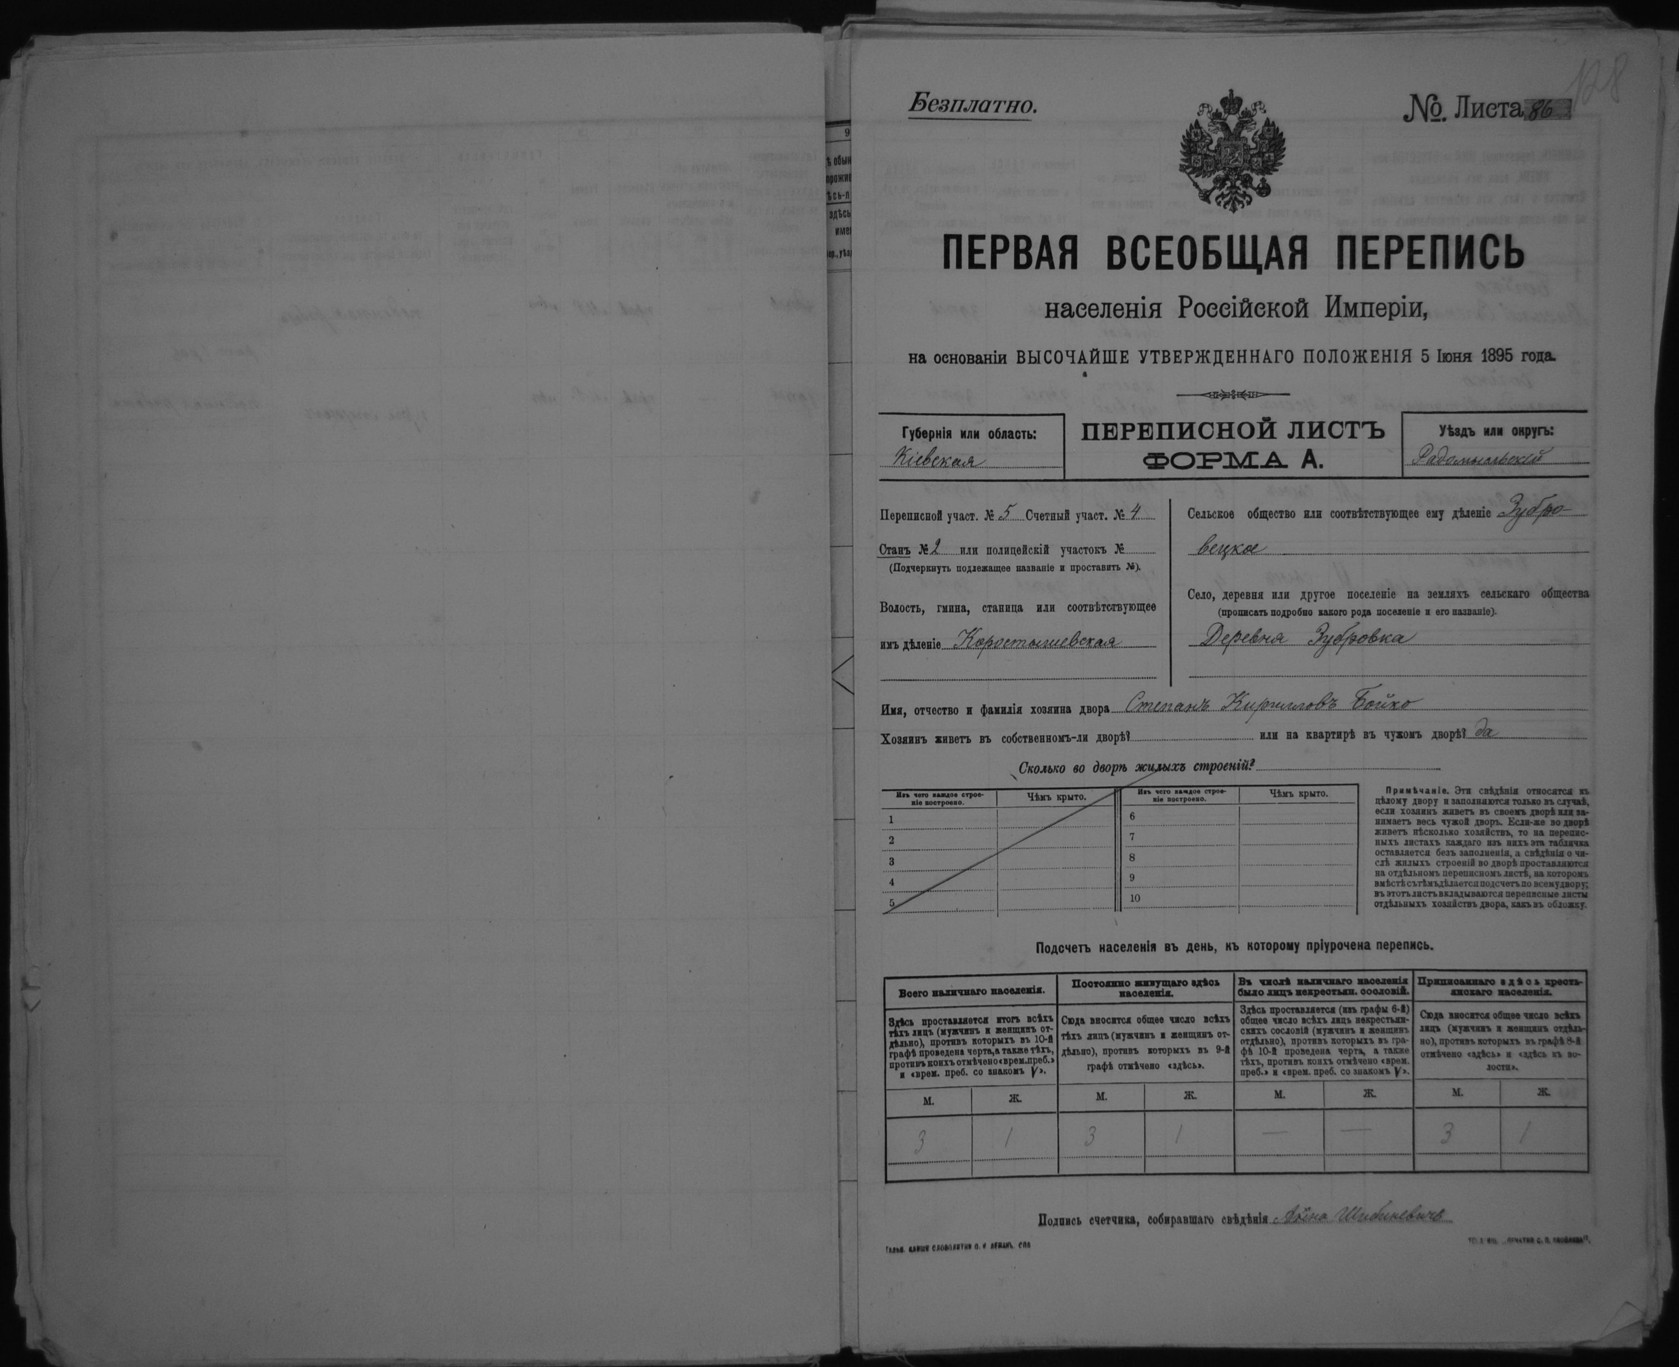 128
Безплатно.
№. Листа 86
ПЕРВАЯ ВСЕОБЩАЯ ПЕРЕПИСЬ
населенія Россійской Имперіи,
на основаніи ВЫСОЧАЙШЕ УТВЕРЖДЕННАГО ПОЛОЖЕНІЯ 5 Іюня 1895 года.
Губернія или область:
Кіевская
ПЕРЕПИСНОЙ ЛИСТЪ
ФОРМА А.
Уѣздъ или округъ:
Радомысльскій
Переписной участ. № 5 Счетный участ. № 4
Станъ № 2 или полицейскій участокъ №
(Подчеркнуть подлежащее названіе и проставить №).
Волость, гмина, станица или соотвѣтствующее
имъ дѣленіе Коростышевская
Сельское общество или соотвѣтствующее ему дѣленіе Зубро-
вецкое
Село, деревня или другое поселеніе на земляхъ сельскаго общества
(прописать подробно какого рода поселеніе и его названіе).
Деревня Зубровка
Имя, отчество и фамилія хозяина двора Степанъ Кирилловъ Бойко
Хозяинъ живетъ въ собственномъ-ли дворѣ? или на квартирѣ въ чужомъ дворѣ? да
Сколько во дворѣ жилыхъ строеній?
Изъ чего каждое строе-
ніе построено.
Чѣмъ крыто.
Изъ чего каждое строе-
ніе построено.
Чѣмъ крыто.
1
2
3
4
5
6
7
8
9
10
Примѣчаніе. Эти свѣдѣнія относятся къ
цѣлому двору и заполняются только въ случаѣ,
если хозяинъ живетъ въ своемъ дворѣ или за-
нимаетъ весь чужой дворъ. Если-же во дворѣ
живетъ нѣсколько хозяйствъ, то на перепис-
ныхъ листахъ каждаго изъ нихъ эта табличка
оставляется безъ заполненія, а свѣдѣнія о чи-
слѣ жилыхъ строеній во дворѣ проставляются
на отдѣльномъ переписномъ листѣ, на которомъ
вмѣстѣ съ тѣмъ дѣлается подсчетъ по всему двору;
въ этотъ листъ вкладываются переписные листы
отдѣльныхъ хозяйствъ двора, какъ въ обложку.
Подсчетъ населенія въ день, къ которому пріурочена перепись.
Всего наличнаго населенія.
Здѣсь проставляется итогъ всѣхъ
тѣхъ лицъ (мужчинъ и женщинъ от-
дѣльно), противъ которыхъ въ 10-й
графѣ проведена черта, а также тѣхъ,
противъ коихъ отмѣчено «врем. преб.»
и «врем. преб. со знакомъ V».
Постоянно живущаго здѣсь
населенія.
Сюда вносится общее число всѣхъ
тѣхъ лицъ (мужчинъ и женщинъ от-
дѣльно), противъ которыхъ въ 9-й
графѣ отмѣчено «здѣсь».
Въ числѣ наличнаго населенія
было лицъ некрестьян. сословій.
Здѣсь проставляется (изъ графы 6-й)
общее число всѣхъ лицъ некрестьян-
скихъ сословій (мужчинъ и женщинъ
отдѣльно), противъ которыхъ въ гра-
фѣ 10-й проведена черта, а также
тѣхъ, противъ коихъ отмѣчено «врем.
преб.» и «врем. преб. со знакомъ V».
Приписаннаго здѣсь кресть-
янскаго населенія.
Сюда вносится общее число всѣхъ
лицъ (мужчинъ и женщинъ отдѣль-
но), противъ которыхъ въ графѣ 8-й
отмѣчено «здѣсь» и «здѣсь въ во-
лости».
М. Ж. М. Ж. М. Ж. М. Ж.
3 1 3 1 — — 3 1
Подпись счетчика, собиравшаго свѣдѣнія